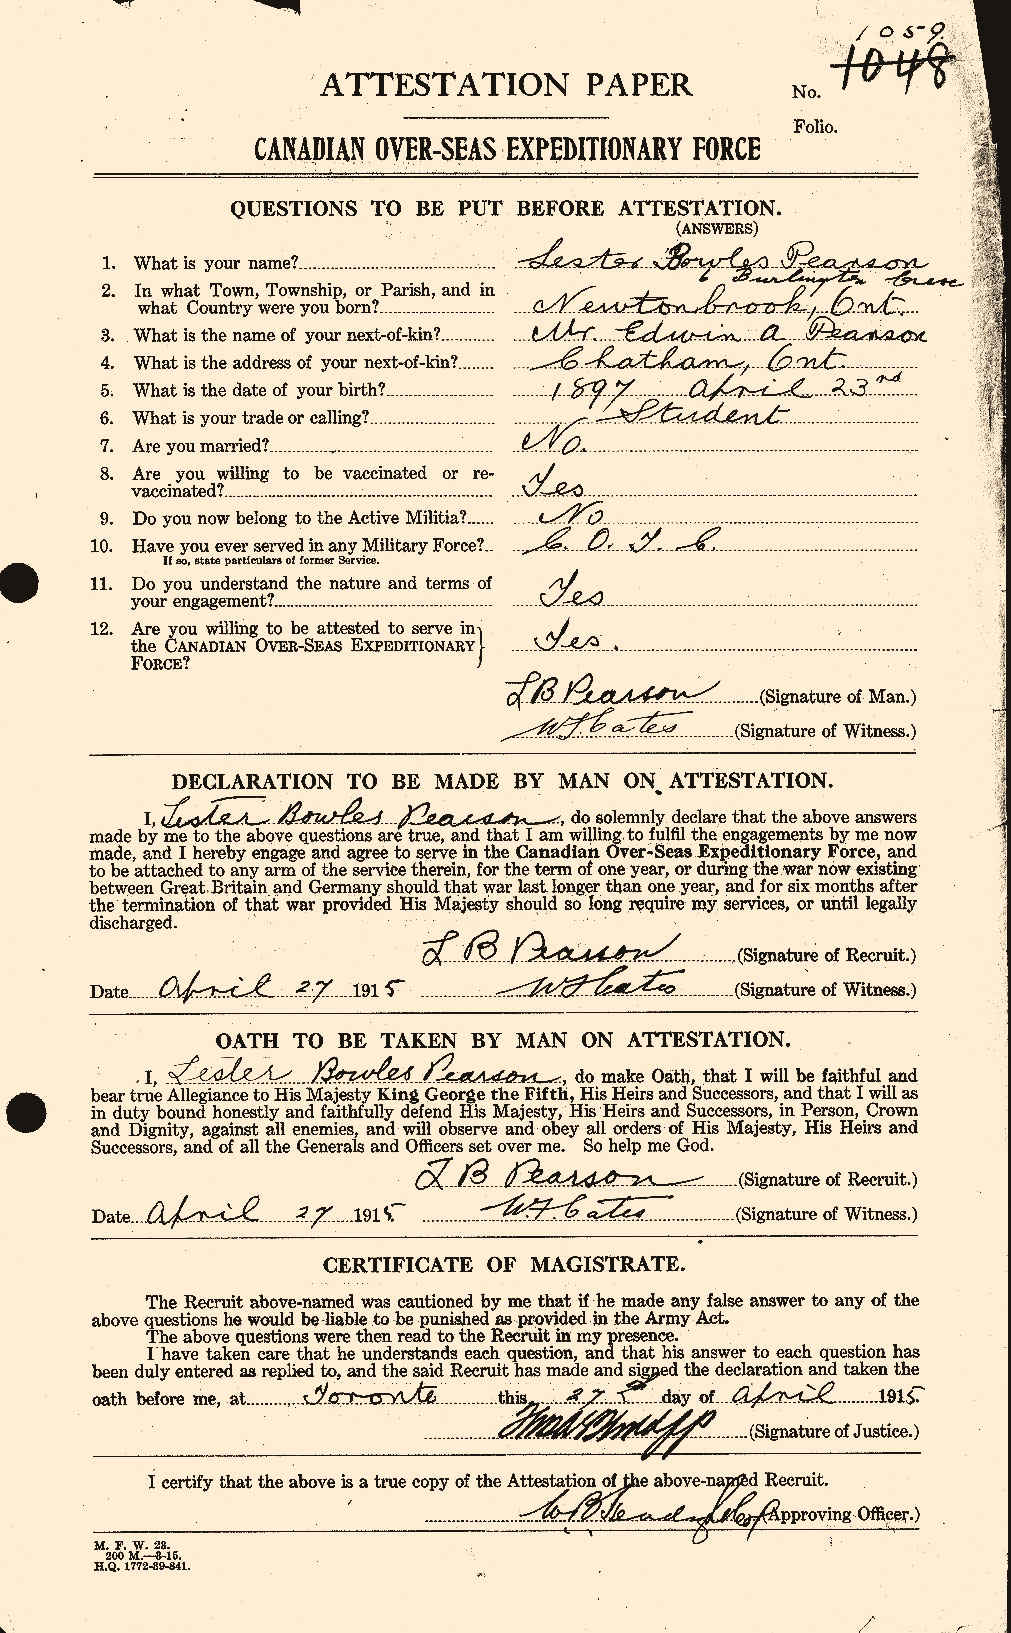 1059.
1048
ATTESTATION PAPER
No.
Folio.
CANADIAN OVER-SEAS EXPEDITIONARY FORCE
QUESTIONS TO BE PUT BEFORE ATTESTATION.
(ANSWERS)
1. What is your name? Lester Bowles Pearson
Burlington
2. In what Town, Township, or Parish, and in
what Country were you born? Newtonbrook, Ont.
3. What is the name of your next-of-kin? Mr. Edwin A Pearson
4. What is the address of your next-of-kin? Chatham, Ont.
5. What is the date of your birth? 1897 April 23rd
6. What is your trade or calling? Student
7. Are you married? No.
8. Are you willing to be vaccinated or re-
vaccinated? Yes
9. Do you now belong to the Active Militia? No
10. Have you ever served in any Military Force? C. O. T. C.
If so, state particulars of former Service.
11. Do you understand the nature and terms of
your engagement? Yes
12. Are you willing to be attested to serve in
the CANADIAN OVER-SEAS EXPEDITIONARY Yes.
FORCE?
L B Pearson (Signature of Man.)
W F Cates (Signature of Witness.)
DECLARATION TO BE MADE BY MAN ON ATTESTATION.
I, Lester Bowles Pearson, do solemnly declare that the above answers
made by me to the above questions are true, and that I am willing to fulfil the engagements by me now
made, and I hereby engage and agree to serve in the Canadian Over-Seas Expeditionary Force, and
to be attached to any arm of the service therein, for the term of one year, or during the war now existing
between Great Britain and Germany should that war last longer than one year, and for six months after
the termination of that war provided His Majesty should so long require my services, or until legally
discharged.
L B Pearson (Signature of Recruit.)
Date April 27 1915 W F Cates (Signature of Witness.)
OATH TO BE TAKEN BY MAN ON ATTESTATION.
I, Lester Bowles Pearson, do make Oath, that I will be faithful and
bear true Allegiance to His Majesty King George the Fifth, His Heirs and Successors, and that I will as
in duty bound honestly and faithfully defend His Majesty, His Heirs and Successors, in Person, Crown
and Dignity, against all enemies, and will observe and obey all orders of His Majesty, His Heirs and
Successors, and of all the Generals and Officers set over me. So help me God.
L B Pearson (Signature of Recruit.)
Date April 27 1915 W. F. Cates (Signature of Witness.)
CERTIFICATE OF MAGISTRATE.
The Recruit above-named was cautioned by me that if he made any false answer to any of the
above questions he would be liable to be punished as provided in the Army Act.
The above questions were then read to the Recruit in my presence.
I have taken care that he understands each question, and that his answer to each question has
been duly entered as replied to, and the said Recruit has made and signed the declaration and taken the
oath before me, at Toronto this 27 day of April 1915
(Signature of Justice.)
I certify that the above is a true copy of the Attestation of the above-named Recruit.
(Approving Officer.)
M. F. W. 23.
200 M.—3-15.
H.Q. 1772-39-841.